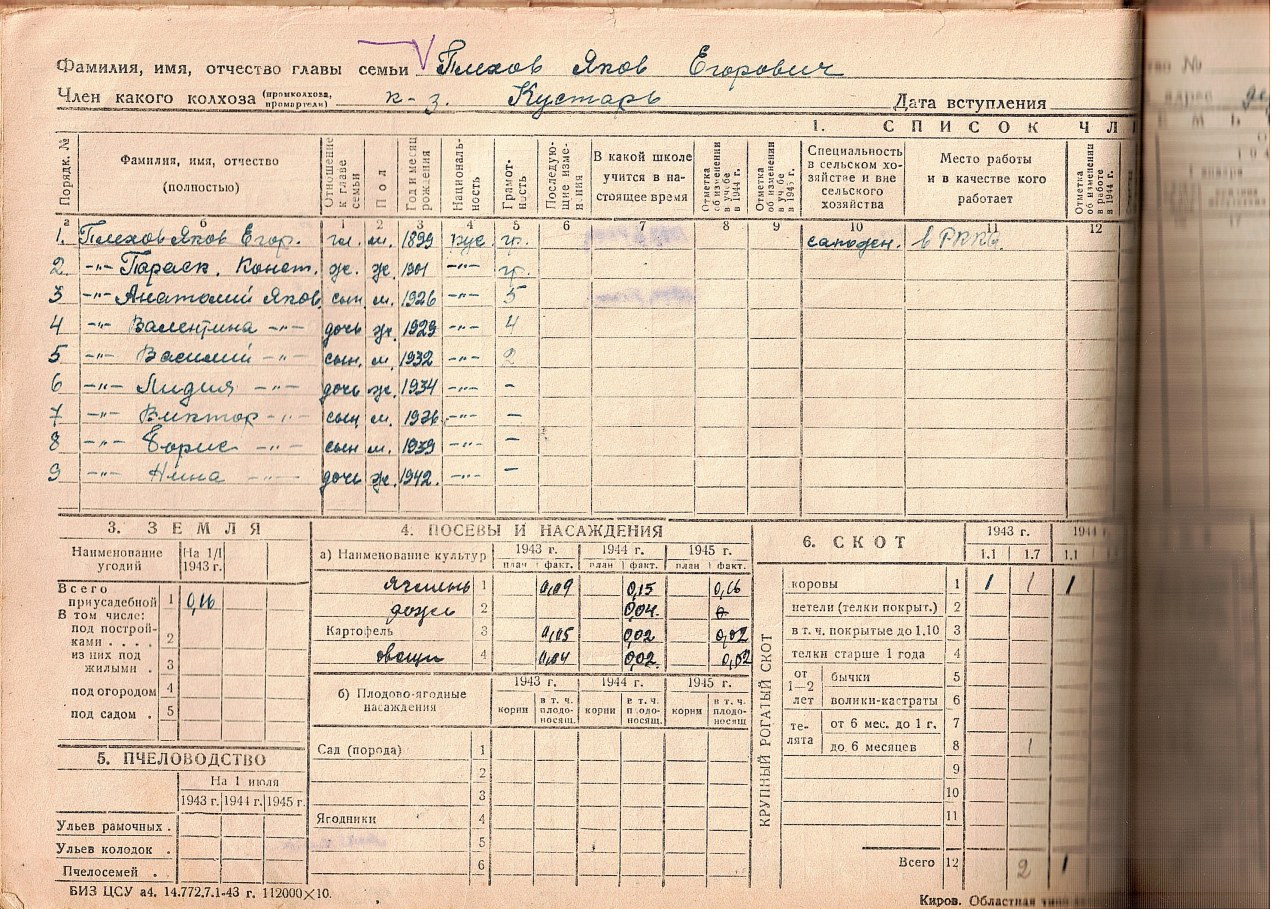 Фамилия, имя, отчество главы семьи Плехов Яков Егорович
Член какого колхоза (промколхоза, промартели) к-з. Кустарь Дата вступления
1. СПИСОК ЧЛ
Порядк. № Фамилия, имя, отчество (полностью) Отношение к главе семьи Пол Год и месяц рождения Националь-ность Грамот-ность Последую-щие изме-нения В какой школе учится в на-стоящее время Отметка об изменении в учебе в 1944 г. Отметка об изменении в учебе в 1945 г. Специальность в сельском хо-зяйстве и вне сельского хозяйства Место работы и в качестве кого работает Отметка об изменении в работе в 1944 г.
а б 1 2 3 4 5 6 7 8 9 10 11 12
1. Плехов Яков Егор. гл. м. 1899 рус. гр. в РККА
2 -"- Параск. Конст. ж. ж. 1901 -"- гр.
3 -"- Анатолий Яков. сын м. 1926 -"- 5
4 -"- Валентина -"- дочь ж. 1929 -"- 4
5 -"- Василий -"- сын. м. 1932 -"- 2
6 -"- Лидия -"- дочь ж. 1934 -"- -
7 -"- Виктор -"- сын м. 1936 -"- -
8 -"- Борис -"- сын м. 1939 -"- -
9 -"- Нина -"- дочь ж. 1942. -"- -
3. ЗЕМЛЯ
Наименование угодий На 1/I 1943 г.
Всего приусадебной 1 0,16
В том числе:
под построй-ками . . . . 2
из них под жилыми . 3
под огородом 4
под садом . 5
5. ПЧЕЛОВОДСТВО
На 1 июля
1943 г. 1944 г. 1945 г.
Ульев рамочных .
Ульев колодок .
Пчелосемей .
4. ПОСЕВЫ И НАСАЖДЕНИЯ
а) Наименование культур 1943 г. 1944 г. 1945 г.
план факт. план факт. план факт.
ячмень 1 0,09 0,15 0,06
2 0,04.
Картофель 3 0,05 0,02 0,02
овощи 4 0,04 0,02. 0,02
б) Плодово-ягодные насаждения 1943 г. 1944 г. 1945 г.
корни в т. ч. плодо-носящ. корни в т. ч. плодо-носящ. корни в т. ч. плодо-носящ
Сад (порода) 1
2
3
Ягодники 4
5
6
6. СКОТ
1943 г. 1944 г
1.1 1.7 1.1
КРУПНЫЙ РОГАТЫЙ СКОТ
коровы 1 1 1 1
нетели (телки покрыт.) 2
в т. ч. покрытые до 1.10 3
телки старше 1 года 4
от 1—2 лет бычки 5
волики-кастраты 6
те-лята от 6 мес. до 1 г. 7
до 6 месяцев 8 1
9
10
11
Всего 12 2 1
БИЗ ЦСУ а4. 14.772.7.1-43 г. 112000×10.
Киров. Областная
№
адрес